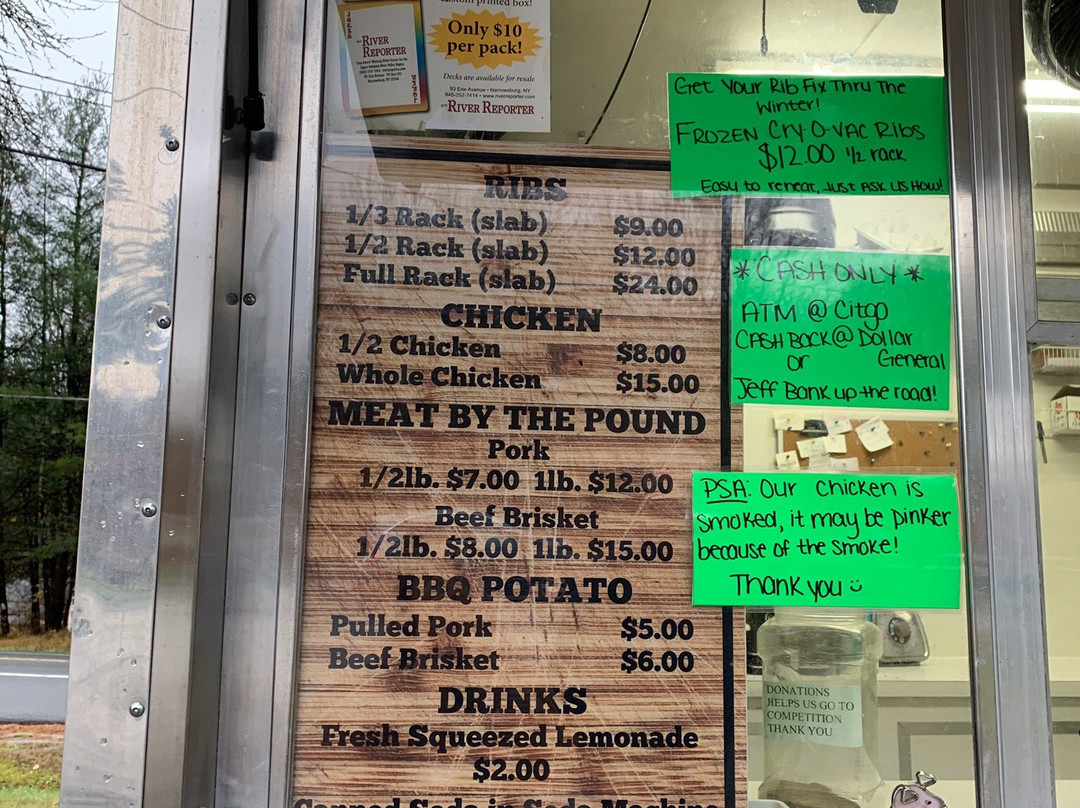 custom printed box!
Only $10
per pack!
Decks are available for resale
93 Erie Avenue • Narrowsburg, NY
845-252-7414 • www.riverreporter.com
RIVER REPORTER
JOKER
RIVER
REPORTER
JOKER
Get Your Rib Fix Thru The
Winter!
FROZEN Cry-O-VAC RIbs
$12.00 1/2 rack
Easy to reheat, Just ASK US HOW!
RIBS
1/3 Rack (slab) $9.00
1/2 Rack (slab) $12.00
Full Rack (slab) $24.00
CHICKEN
1/2 Chicken $8.00
Whole Chicken $15.00
MEAT BY THE POUND
Pork
1/2lb. $7.00 1lb. $12.00
Beef Brisket
1/2lb. $8.00 1lb. $15.00
BBQ POTATO
Pulled Pork $5.00
Beef Brisket $6.00
DRINKS
Fresh Squeezed Lemonade
$2.00
Canned Soda in Soda Machine
* CASH ONLY *
ATM @ Citgo
CASH BACK @ Dollar
or General
Jeff Bank up the road!
PSA: Our chicken is
smoked, it may be pinker
because of the smoke!
Thank you
DONATIONS
HELPS US GO TO
COMPETITION
THANK YOU